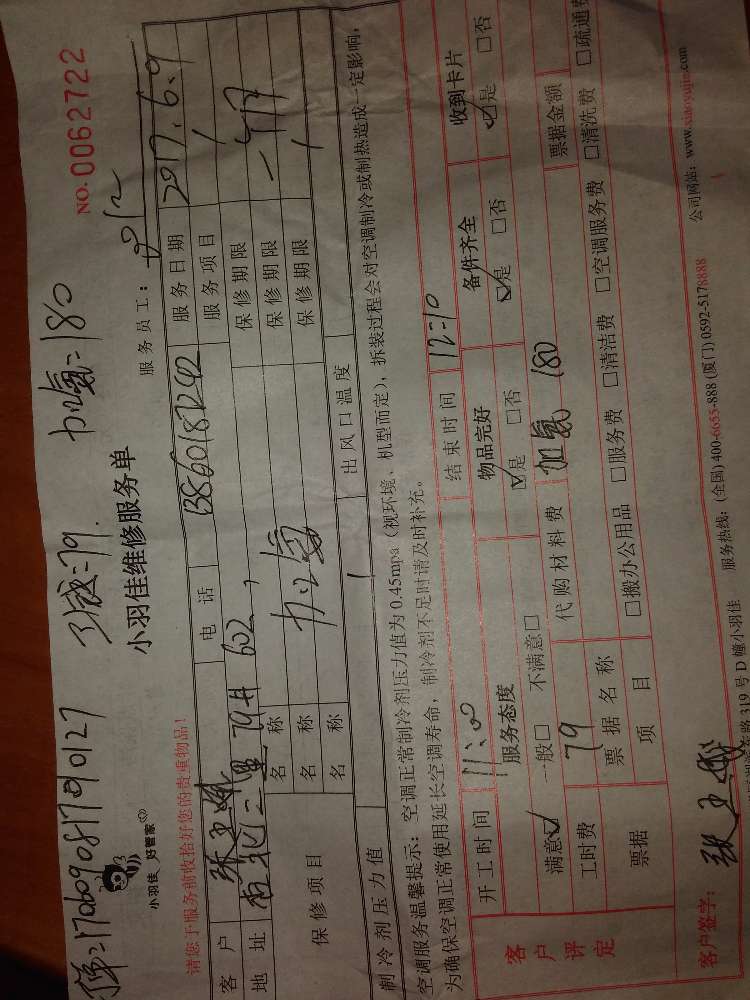 加氨=180
NO. 0062722
小羽佳 好管家
小羽佳维修服务单
服务员工：
请您于服务前收拾好您的贵重物品！
客户 电话 13860187242 服务日期 2017.6.9
地址 79# 602 服务项目 /
保修项目 名称 加氨 保修期限 一个月
名称 保修期限 /
名称 保修期限
制冷剂压力值 / 出风口温度
空调服务温馨提示：空调正常制冷剂压力值为 0.45mpa（视环境、机型而定），拆装过程会对空调制冷或制热造成一定影响，
为确保空调正常使用延长空调寿命，制冷剂不足时请及时补充。
客户评定 开工时间 11:00 结束时间 12=10
服务态度 物品完好 备件齐全 收到卡片
满意☑ 一般□ 不满意□ ☑是 □否 ☑是 □否 ☑是 □否
工时费 79 代购材料费 加氨 180
票据 票据名称 票据金额
项目 □搬办公用品 □服务费 □清洁费 □空调服务费 □清洗费 □疏通费
客户签字：
服务热线：(全国) 400-6655-888 (厦门) 0592-5178888 公司网站：www.xiaoyujia.com
319 号 D 幢小羽佳